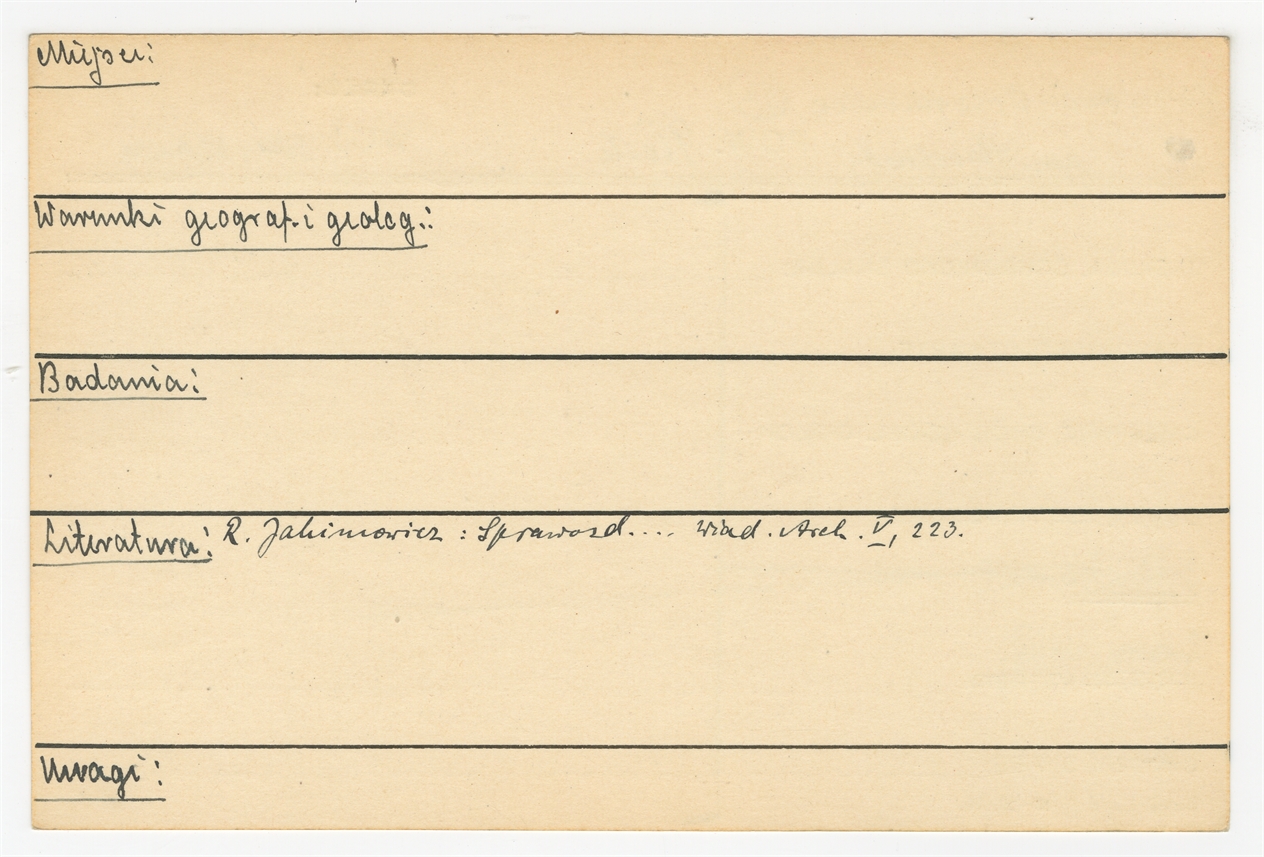 Miejsce:
Warunki geograf. i geolog.:
Badania:
Literatura: R. Jakimowicz : Sprawozd.... Wiad. Arch. V, 223.
Uwagi: